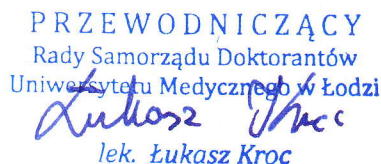 PRZEWODNICZĄCY
Rady Samorządu Doktorantów
Uniwersytetu Medycznego w Łodzi
Łukasz Kroc
lek. Łukasz Kroc